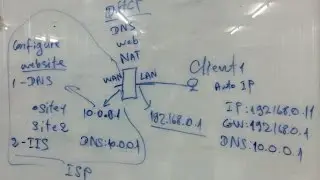 DHCP
DNS
web
NAT
Configure
website
1-DNS
site1
site2
2-IIS
ISP
WAN
LAN
10.0.0.1
DNS:10.0.0.1
192.168.0.1
Client1
Auto IP
IP:192.168.0.11
GW:192.168.0.1
DNS:10.0.0.1